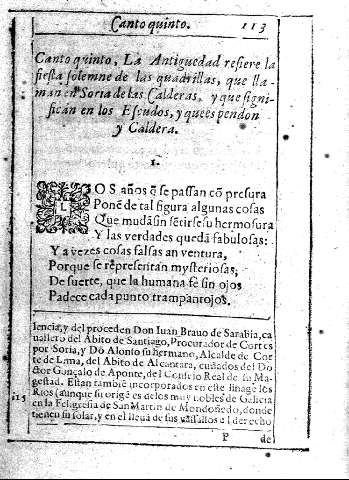 Canto quinto. 113
Canto quinto, La Antiguedad refiere la
fiesta solemne de las quadrillas, que lla-
man en Soria de las Calderas, y que signi-
fican en los Escudos, y que es pendon
y Caldera.
1.
LOS años q̃ se passan cõ presura
Ponẽ de tal figura algunas cosas
Que mudã sin sẽtirse su hermosura
Y las verdades quedã fabulosas:
Y a vezes cosas falsas an ventura,
Porque se representan mysteriosas;
De suerte, que la humana fè sin ojos
Padece cada punto trampantojos.
lencia, y del proceden Don Iuan Brauo de Sarabia, ca
uallero del Abito de Santiago, Procurador de Cortes
por Soria, y Dõ Alonso su hermano, Alcalde de Cor
te de Lima, del Abito de Alcantara, cuñados del Do
ctor Gonçalo de Aponte, del Consejo Real de su Ma-
gestad. Estan tambiẽ incorporados en este linage los
115 Rios (aunque su origẽ es de los muy nobles de Galicia
en la Feligresia de San Martin de Mondoñedo, donde
tienen su solar, y en el lleuã de sus vassallos el derecho
P de